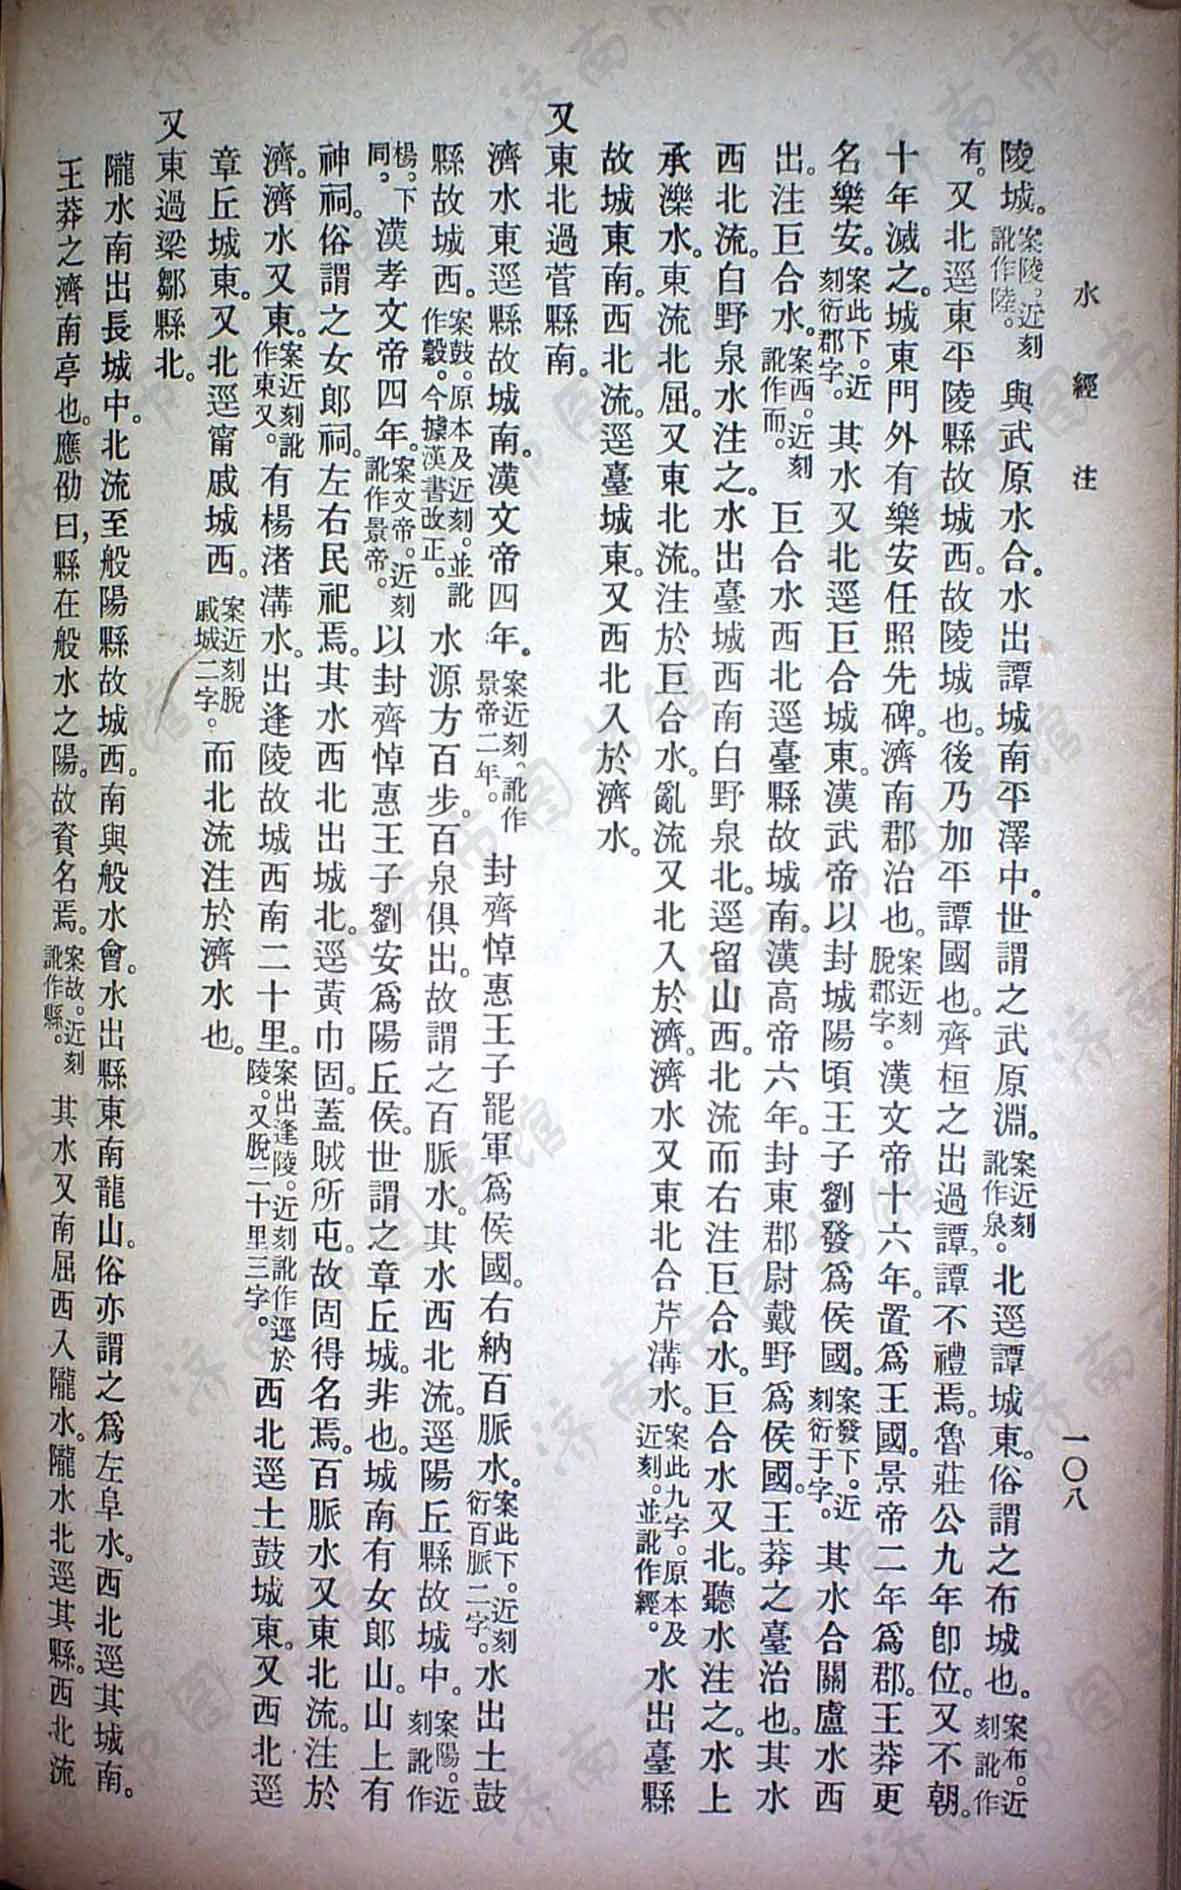 水經注
一〇八
陵城。案陵。近刻訛作陸。與武原水合。水出譚城南平澤中。世謂之武原淵。案近刻訛作泉。北逕譚城東。俗謂之布城也。案布。近刻訛作
有。又北逕東平陵縣故城西。故陵城也。後乃加平譚國也。齊桓之出過譚。譚不禮焉。魯莊公九年卽位。又不朝。
十年滅之。城東門外有樂安任照先碑。濟南郡治也。案近刻脫郡字。漢文帝十六年。置爲王國。景帝二年爲郡。王莽更
名樂安。案此下。近刻衍郡字。其水又北逕巨合城東。漢武帝以封城陽頃王子劉發爲侯國。案發下。近刻衍于字。其水合關盧水西
出。注巨合水。案西。近刻訛作而。巨合水西北逕臺縣故城南。漢高帝六年。封東郡尉戴野爲侯國。王莽之臺治也。其水
西北流。白野泉水注之。水出臺城西南白野泉北。逕留山西。北流而右注巨合水。巨合水又北。聽水注之。水上
承濼水。東流北屈。又東北流。注於巨合水。亂流又北入於濟。濟水又東北合芹溝水。案此九字。原本及近刻。並訛作經。水出臺縣
故城東南。西北流。逕臺城東。又西北入於濟水。
又東北過菅縣南。
濟水東逕縣故城南。漢文帝四年。案近刻。訛作景帝二年。封齊悼惠王子罷軍爲侯國。右納百脈水。案此下。近刻衍百脈二字。水出土鼓
縣故城西。案鼓。原本及近刻。並訛作穀。今據漢書改正。水源方百步。百泉俱出。故謂之百脈水。其水西北流。逕陽丘縣故城中。案陽。近刻訛作
楊。下同，漢孝文帝四年。案文帝。近刻訛作景帝。以封齊悼惠王子劉安爲陽丘侯。世謂之章丘城。非也。城南有女郎山。山上有
神祠。俗謂之女郎祠。左右民祀焉。其水西北出城北。逕黃巾固。蓋賊所屯。故固得名焉。百脈水又東北流。注於
濟。濟水又東。案近刻訛作東又。有楊渚溝水。出逢陵故城西南二十里。案出逢陵。近刻訛作逕於陵。又脫二十里三字。西北逕土鼓城東。又西北逕
章丘城東。又北逕甯戚城西。案近刻脫戚城二字。而北流注於濟水也。
又東過梁鄒縣北。
隴水南出長城中。北流至般陽縣故城西。南與般水會。水出縣東南龍山。俗亦謂之爲左阜水。西北逕其城南。
王莽之濟南亭也。應劭曰，縣在般水之陽。故資名焉。案故。近刻訛作縣。其水又南屈西入隴水。隴水北逕其縣。西北流